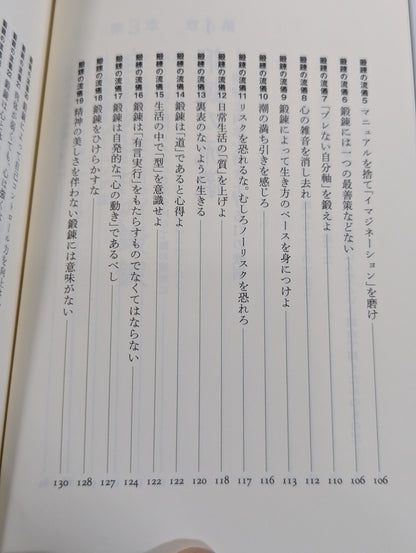 鍛錬の流儀5 マニュアルを捨て「イマジネーション」を磨け 106
鍛錬の流儀6 鍛錬には一つの最善策などない 106
鍛錬の流儀7 「ブレない自分軸」を鍛えよ 110
鍛錬の流儀8 心の雑音を消し去れ 112
鍛錬の流儀9 鍛錬によって生き方のベースを身につけよ 113
鍛錬の流儀10 潮の満ち引きを感じろ 116
鍛錬の流儀11 リスクを恐れるな。むしろノーリスクを恐れろ 117
鍛錬の流儀12 日常生活の「質」を上げよ 118
鍛錬の流儀13 裏表のないように生きる 120
鍛錬の流儀14 鍛錬は「道」であると心得よ 122
鍛錬の流儀15 生活の中で「型」を意識せよ 122
鍛錬の流儀16 鍛錬は「有言実行」をもたらすものでなくてはならない 124
鍛錬の流儀17 鍛錬は自発的な「心の動き」であるべし 127
鍛錬の流儀18 鍛錬をひけらかすな 128
鍛錬の流儀19 精神の美しさを伴わない鍛錬には意味がない 130